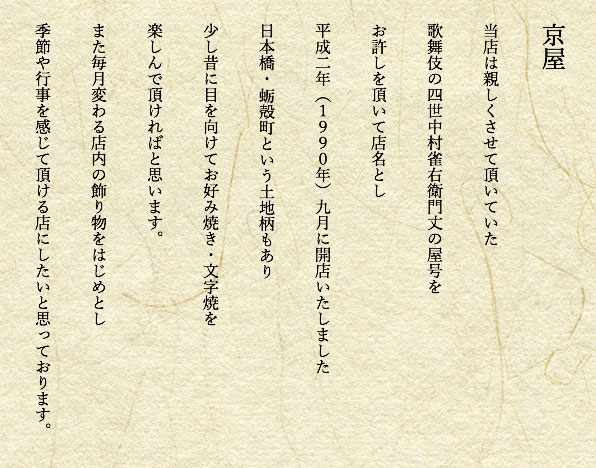 京屋
当店は親しくさせて頂いていた
歌舞伎の四世中村雀右衛門丈の屋号を
お許しを頂いて店名とし
平成二年（1990年）九月に開店いたしました
日本橋・蛎殻町という土地柄もあり
少し昔に目を向けてお好み焼き・文字焼を
楽しんで頂ければと思います。
また毎月変わる店内の飾り物をはじめとし
季節や行事を感じて頂ける店にしたいと思っております。